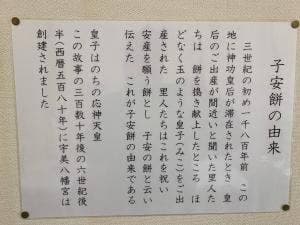 子安餅の由来
三世紀の初め一千八百年前　この
地に神功皇后が滞在されたとき　皇
后のご出産が間近いと聞いた里人た
ちは　餅を搗き献上したところ　ほ
どなく玉のような皇子(みこ)をご出
産された　里人たちはこれを祝い
安産を願う餅とし　子安の餅と云い
伝えた　これが子安餅の由来である
皇子はのちの応神天皇
この故事の三百数十年後の六世紀後
半(西暦五百八十年)に宇美八幡宮は
創建されました